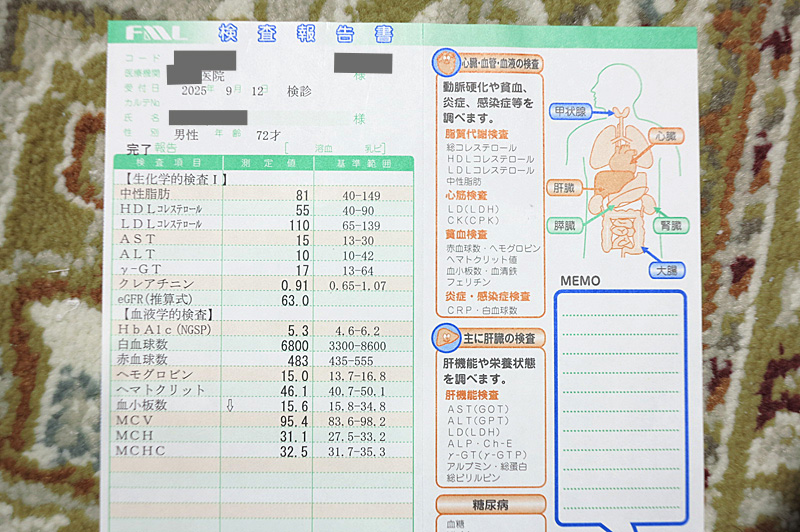 FML 検査報告書
コード
医療機関 医院 様
受付日 2025年 9月 12日 検診
カルテNo.
氏名 様
性別 男性 年齢 72才
完了 報告 [ 溶血 乳ビ]
検査項目 測定値 基準範囲
【生化学的検査Ⅰ】
中性脂肪 81 40-149
HDLコレステロール 55 40-90
LDLコレステロール 110 65-139
AST 15 13-30
ALT 10 10-42
γ-GT 17 13-64
クレアチニン 0.91 0.65-1.07
eGFR(推算式) 63.0
【血液学的検査】
HbA1c(NGSP) 5.3 4.6-6.2
白血球数 6800 3300-8600
赤血球数 483 435-555
ヘモグロビン 15.0 13.7-16.8
ヘマトクリット 46.1 40.7-50.1
血小板数 ⇩ 15.6 15.8-34.8
MCV 95.4 83.6-98.2
MCH 31.1 27.5-33.2
MCHC 32.5 31.7-35.3
心臓・血管・血液の検査
動脈硬化や貧血、
炎症、感染症等を
調べます。
脂質代謝検査
総コレステロール
HDLコレステロール
LDLコレステロール
中性脂肪
心筋検査
LD(LDH)
CK(CPK)
貧血検査
赤血球数・ヘモグロビン
ヘマトクリット値
血小板数・血清鉄
フェリチン
炎症・感染症検査
CRP・白血球数
主に肝臓の検査
肝機能や栄養状態
を調べます。
肝機能検査
AST(GOT)
ALT(GPT)
LD(LDH)
ALP・Ch-E
γ-GT(γ-GTP)
アルブミン・総蛋白
総ビリルビン
糖尿病
血糖
甲状腺
心臓
肝臓
膵臓
腎臓
大腸
MEMO